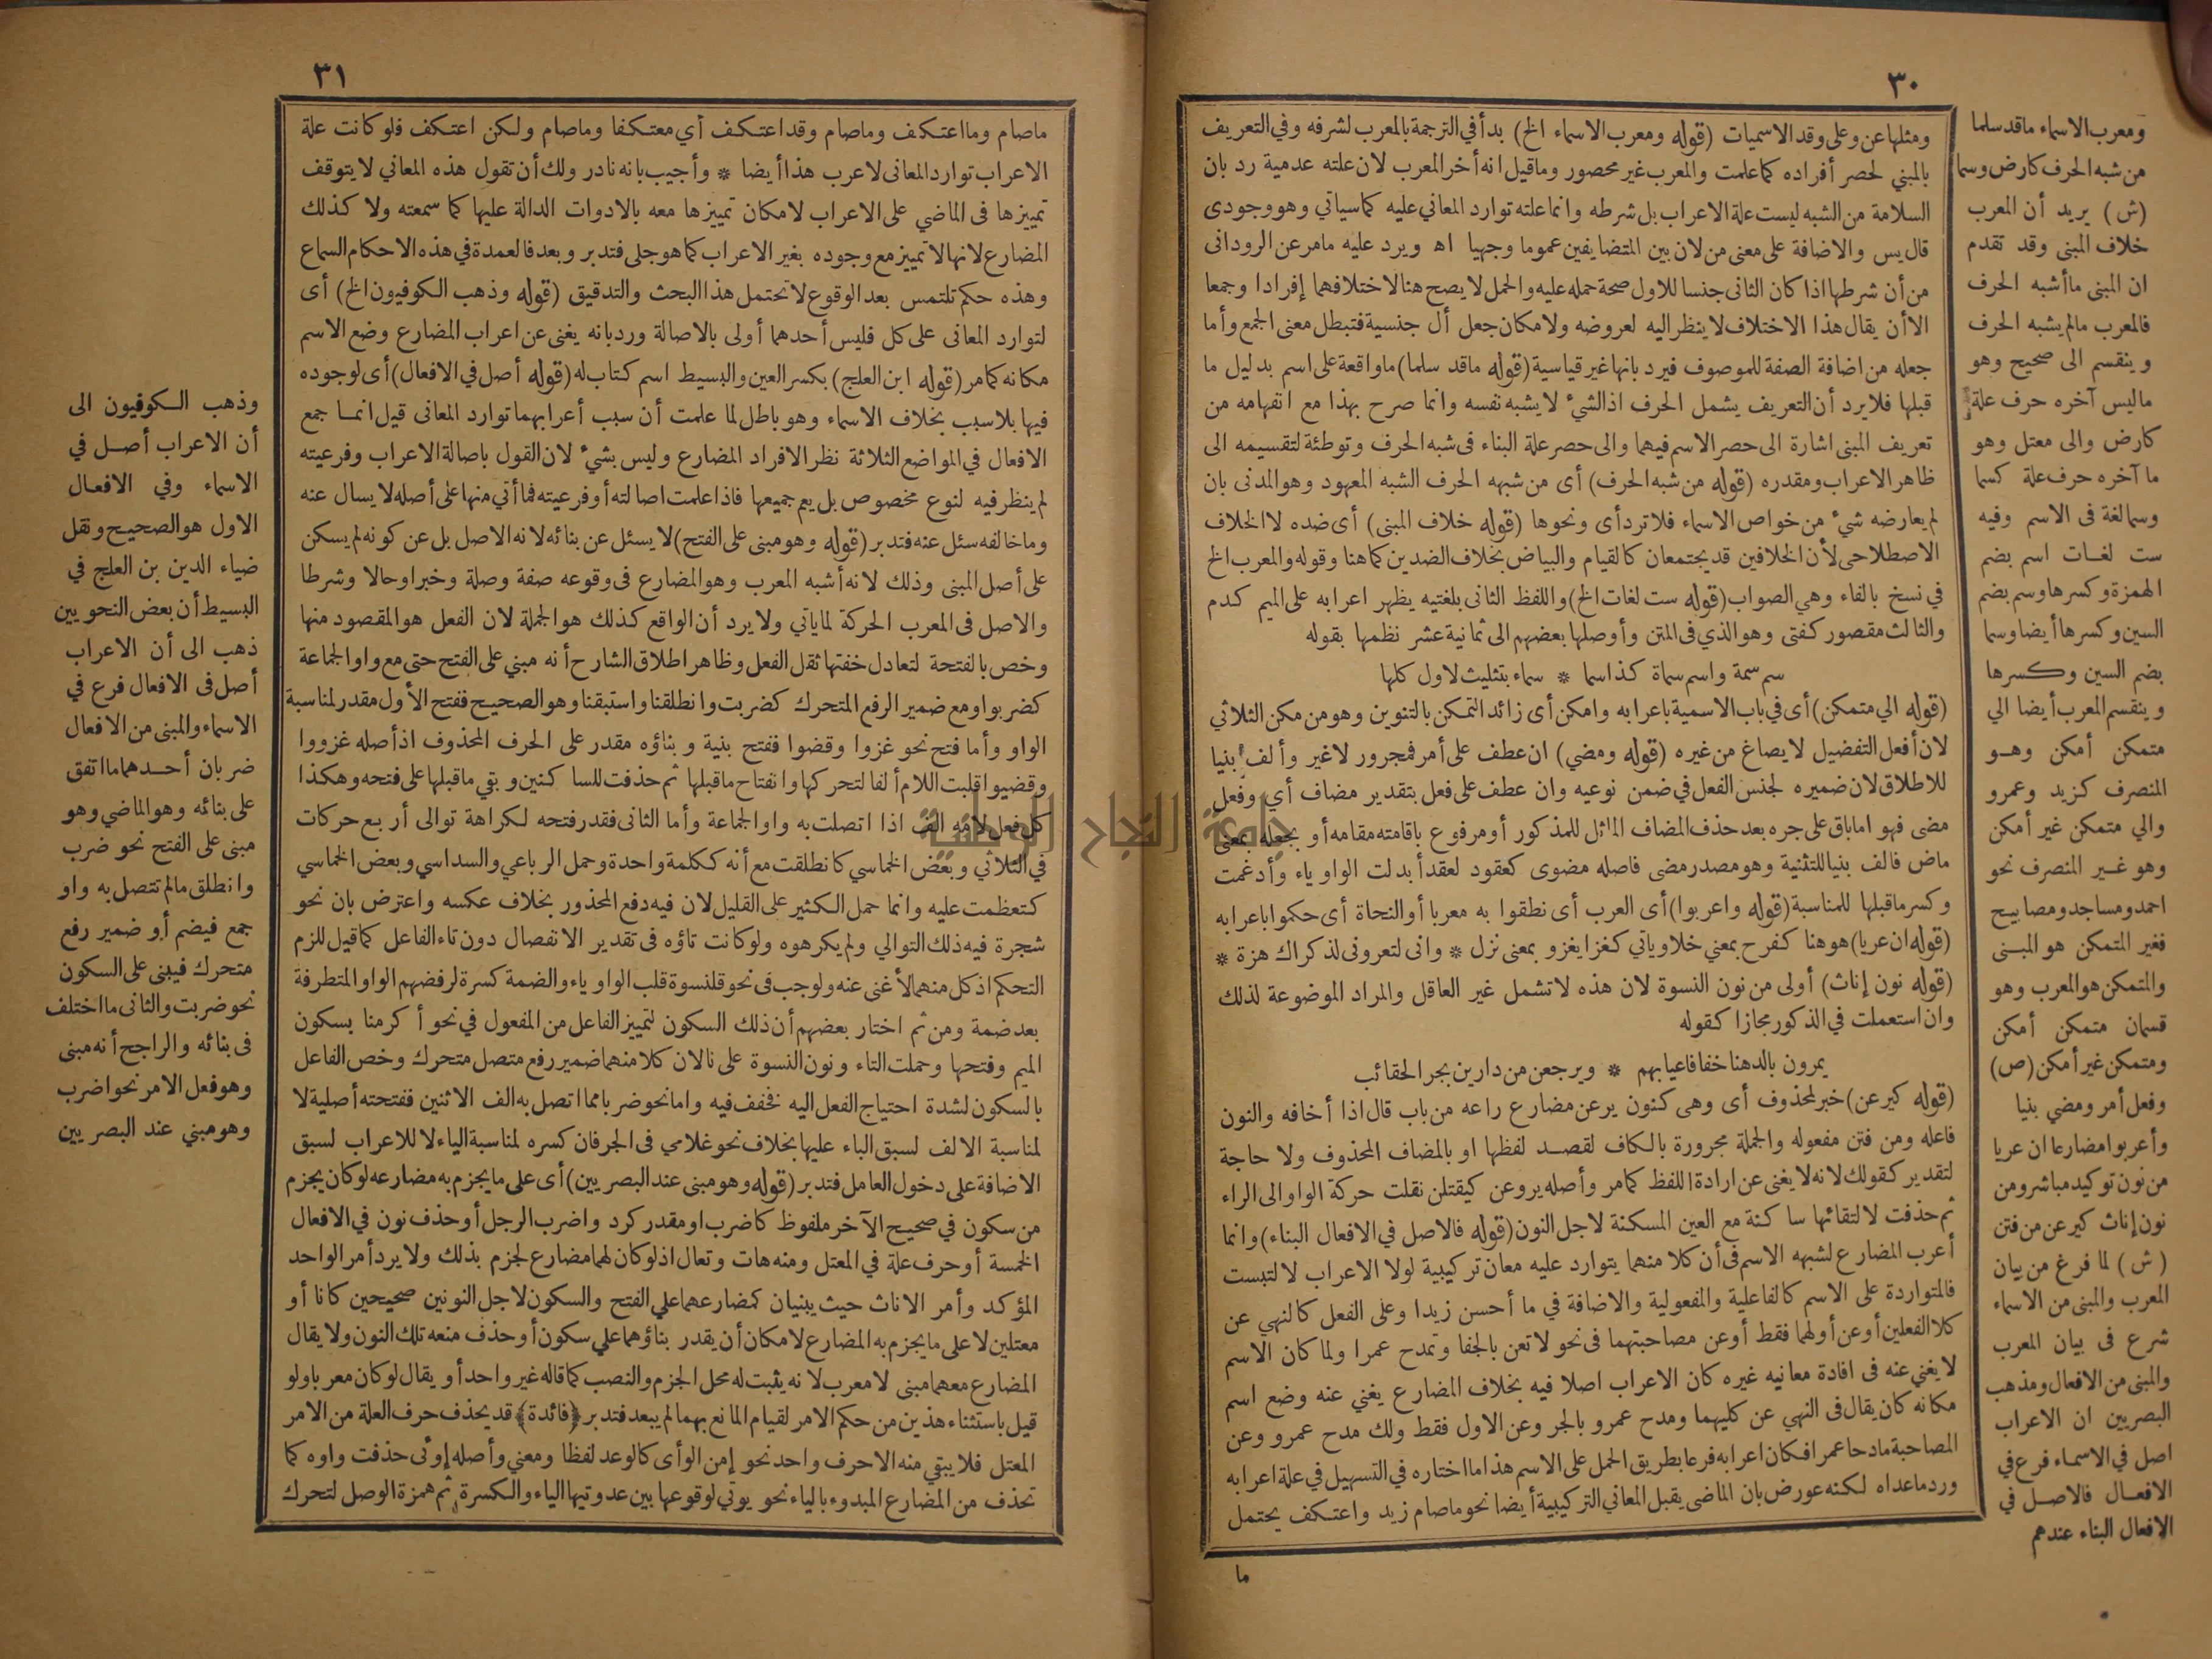 ٣٠
ومعرب الاسماء ماقد سلما
من شبه الحرف كارض وسما
(ش) يريد أن المعرب
خلاف المبنى وقد تقدم
ان المبنى ماأشبه الحرف
فالمعرب مالم يشبه الحرف
وينقسم الى صحيح وهو
ماليس آخره حرف علة
كارض والى معتل وهو
ما آخره حرف علة كسما
وسما لغة فى الاسم وفيه
ست لغات اسم بضم
الهمزة وكسرها وسم بضم
السين وكسرها أيضا وسما
بضم السين وكسرها
وينقسم المعرب أيضا الي
متمكن أمكن وهو
المنصرف كزيد وعمرو
والي متمكن غير أمكن
وهو غير المنصرف نحو
احمد ومساجد ومصابيح
فغير المتمكن هو المبنى
والمتمكن هو المعرب وهو
قسمان متمكن أمكن
ومتمكن غير أمكن (ص)
وفعل أمر ومضي بنيا
وأعربوا مضارعا ان عريا
من نون توكيد مباشر ومن
نون إناث كيرعن من فتن
(ش) لما فرغ من بيان
المعرب والمبنى من الاسماء
شرع فى بيان المعرب
والمبنى من الافعال ومذهب
البصريين ان الاعراب
اصل في الاسماء فرع في
الافعال فالاصل في
الافعال البناء عندهم
ومثلها عن وعلى وقد الاسميات (قوله ومعرب الاسماء الخ) بدأ في الترجمة بالمعرب لشرفه وفي التعريف
بالمبني لحصر أفراده كما علمت والمعرب غير محصور وماقيل انه أخر المعرب لان علته عدمية رد بان
السلامة من الشبه ليست علة الاعراب بل شرطه وانما علته توارد المعاني عليه كما سياتي وهو وجودى
قال يس والاضافة على معنى من لان بين المتضايفين عموما وجهيا اه ويرد عليه مامر عن الرودانى
من أن شرطها اذا كان الثانى جنسا للاول صحة حمله عليه والحمل لايصح هنا لاختلافهما إفرادا وجمعا
الا أن يقال هذا الاختلاف لاينظر اليه لعروضه ولامكان جعل أل جنسية فتبطل معنى الجمع وأما
جعله من اضافة الصفة للموصوف فيرد بانها غير قياسية (قوله ماقد سلما) ماواقعة على اسم بدليل ما
قبلها فلا يرد أن التعريف يشمل الحرف اذ الشئ لا يشبه نفسه وانما صرح بهذا مع انفهامه من
تعريف المبنى اشارة الى حصر الاسم فيهما والى حصر علة البناء فى شبه الحرف وتوطئة لتقسيمه الى
ظاهر الاعراب ومقدره (قوله من شبه الحرف) أى من شبهه الحرف الشبه المعهود وهو المدنى بان
لم يعارضه شئ من خواص الاسماء فلا ترد أى ونحوها (قوله خلاف المبنى) أى ضده لا الخلاف
الاصطلاحى لأن الخلافين قد يجتمعان كالقيام والبياض بخلاف الضدين كما هنا وقوله والمعرب الخ
في نسخ بالفاء وهي الصواب (قوله ست لغات الخ) واللفظ الثانى بلغتيه يظهر اعرابه على الميم كدم
والثالث مقصور كفتى وهو الذي فى المتن وأوصلها بعضهم الى ثمانية عشر نظمها بقوله
سم سمة واسم سماة كذا سما * سماء بتثليث لاول كلها
(قوله الي متمكن) أى في باب الاسمية باعرابه وامكن أى زائد التمكن بالتنوين وهو من مكن الثلاثي
لان أفعل التفضيل لا يصاغ من غيره (قوله ومضي) ان عطف على أمر فمجرور لاغير وألف بنيا
للاطلاق لان ضميره لجنس الفعل في ضمن نوعيه وان عطف على فعل بتقدير مضاف أى وفعل
مضى فهو اما باق على جره بعد حذف المضاف المماثل للمذكور أو مرفوع باقامته مقامه أو بجعله بمعنى
ماض فالف بنيا للتثنية وهو مصدر مضى فاصله مضوى كعقود لعقد أبدلت الواو ياء وأدغمت
وكسر ماقبلها للمناسبة (قوله واعربوا) أى العرب أى نطقوا به معربا أو النحاة أى حكموا باعرابه
(قوله ان عريا) هو هنا كفرح بمعني خلا وياتي كغزا يغزو بمعنى نزل * وانى لتعرونى لذكراك هزة *
(قوله نون إناث) أولى من نون النسوة لان هذه لا تشمل غير العاقل والمراد الموضوعة لذلك
وان استعملت في الذكور مجازا كقوله
يمرون بالدهنا خفافا عيابهم * ويرجعن من دارين بجر الحقائب
(قوله كيرعن) خبر لمحذوف أى وهى كنون يرعن مضارع راعه من باب قال اذا أخافه والنون
فاعله ومن فتن مفعوله والجملة مجرورة بالكاف لقصد لفظها او بالمضاف المحذوف ولا حاجة
لتقدير كقولك لانه لا يغنى عن ارادة اللفظ كما مر وأصله يروعن كيقتلن نقلت حركة الواو الى الراء
ثم حذفت لالتقائها ساكنة مع العين المسكنة لاجل النون (قوله فالاصل في الافعال البناء) وانما
أعرب المضارع لشبهه الاسم فى أن كلا منهما يتوارد عليه معان تركيبية لولا الاعراب لالتبست
فالمتواردة على الاسم كالفاعلية والمفعولية والاضافة في ما أحسن زيدا وعلى الفعل كالنهي عن
كلا الفعلين أو عن أولهما فقط أو عن مصاحبتهما فى نحو لا تعن بالجفا وتمدح عمرا ولما كان الاسم
لا يغني عنه فى افادة معانيه غيره كان الاعراب اصلا فيه بخلاف المضارع يغني عنه وضع اسم
مكانه كان يقال فى النهي عن كليهما ومدح عمرو بالجر وعن الاول فقط ولك مدح عمرو وعن
المصاحبة مادحا عمرا فكان اعرابه فرعا بطريق الحمل على الاسم هذا ما اختاره في التسهيل في علة اعرابه
ورد ماعداه لكنه عورض بان الماضى يقبل المعاني التركيبية أيضا نحو ماصام زيد واعتكف يحتمل
ما
٣١
ماصام وما اعتكف وماصام وقد اعتكف أي معتكفا وماصام ولكن اعتكف فلو كانت علة
الاعراب توارد المعانى لاعرب هذا أيضا * وأجيب بانه نادر ولك أن تقول هذه المعاني لا يتوقف
تمييزها فى الماضي على الاعراب لامكان تمييزها معه بالادوات الدالة عليها كما سمعته ولا كذلك
المضارع لانها لا تمييز مع وجوده بغير الاعراب كما هو جلى فتدبر وبعد فالعمدة في هذه الاحكام السماع
وهذه حكم تلتمس بعد الوقوع لا تحتمل هذا البحث والتدقيق (قوله وذهب الكوفيون الخ) أى
لتوارد المعانى على كل فليس أحدهما أولى بالاصالة ورد بانه يغنى عن اعراب المضارع وضع الاسم
مكانه كما مر (قوله ابن العلج) بكسر العين والبسيط اسم كتاب له (قوله أصل في الافعال) أى لوجوده
فيها بلا سبب بخلاف الاسماء وهو باطل لما علمت أن سبب أعرابهما توارد المعانى قيل انما جمع
الافعال في المواضع الثلاثة نظر الافراد المضارع وليس بشئ لان القول باصالة الاعراب وفرعيته
لم ينظر فيه لنوع مخصوص بل يعم جميعها فاذا علمت اصالته أو فرعيته فما أتي منها على أصله لا يسال عنه
وما خالفه سئل عنه فتدبر (قوله وهو مبنى على الفتح) لا يسئل عن بنائه لانه الاصل بل عن كونه لم يسكن
على أصل المبنى وذلك لانه أشبه المعرب وهو المضارع فى وقوعه صفة وصلة وخبرا وحالا وشرطا
والاصل فى المعرب الحركة لما ياتي ولا يرد أن الواقع كذلك هو الجملة لان الفعل هو المقصود منها
وخص بالفتحة لتعادل خفتها ثقل الفعل وظاهر اطلاق الشارح أنه مبني على الفتح حتى مع واو الجماعة
كضربوا ومع ضمير الرفع المتحرك كضربت وانطلقنا واستبقنا وهو الصحيح ففتح الأول مقدر لمناسبة
الواو وأما فتح نحو غزوا وقضوا ففتح بنية وبناؤه مقدر على الحرف المحذوف اذ أصله غزووا
وقضيوا قلبت اللام ألفا لتحركها وانفتاح ماقبلها ثم حذفت للساكنين وبقي ماقبلها على فتحه وهكذا
كل فعل لامه الف اذا اتصلت به واو الجماعة وأما الثانى فقدر فتحه لكراهة توالى أربع حركات
في الثلاثي وبعض الخماسي كانطلقت مع أنه ككلمة واحدة وحمل الرباعي والسداسي وبعض الخماسي
كتعظمت عليه وانما حمل الكثير على القليل لان فيه دفع المحذور بخلاف عكسه واعترض بان نحو
شجرة فيه ذلك التوالي ولم يكرهوه ولو كانت تاؤه فى تقدير الانفصال دون تاء الفاعل كما قيل للزم
التحكم اذ كل منهما لا غنى عنه ولوجب فى نحو قلنسوة قلب الواو ياء والضمة كسرة لرفضهم الواو المتطرفة
بعد ضمة ومن ثم اختار بعضهم أن ذلك السكون لتمييز الفاعل من المفعول في نحو أكرمنا بسكون
الميم وفتحها وحملت التاء ونون النسوة على نا لان كلا منهما ضمير رفع متصل متحرك وخص الفاعل
بالسكون لشدة احتياج الفعل اليه فخفف فيه واما نحو ضربا مما اتصل به الف الاثنين ففتحته أصلية لا
لمناسبة الالف لسبق الباء عليها بخلاف نحو غلامي فى الجر فان كسره لمناسبة الياء لا للاعراب لسبق
الاضافة على دخول العامل فتدبر (قوله وهو مبنى عند البصريين) أى على مايجزم به مضارعه لو كان يجزم
من سكون في صحيح الآخر ملفوظ كاضرب او مقدر كرد واضرب الرجل أو حذف نون في الافعال
الخمسة أو حرف علة في المعتل ومنه هات وتعال اذ لو كان لهما مضارع لجزم بذلك ولا يرد أمر الواحد
المؤكد وأمر الاناث حيث يبنيان كمضارعهما على الفتح والسكون لاجل النونين صحيحين كانا أو
معتلين لا على مايجزم به المضارع لامكان أن يقدر بناؤهما على سكون أو حذف منعه تلك النون ولا يقال
المضارع معهما مبنى لا معرب لانه يثبت له محل الجزم والنصب كما قاله غير واحد أو يقال لو كان معربا ولو
قيل باستثناء هذين من حكم الامر لقيام المانع بهما لم يبعد فتدبر ﴿فائدة﴾ قد يحذف حرف العلة من الامر
المعتل فلا يبقي منه الا حرف واحد نحو إ من الوأى كالوعد لفظا ومعني وأصله إوئى حذفت واوه كما
تحذف من المضارع المبدوء بالياء نحو يوئي لوقوعها بين عدوتيها الياء والكسرة ثم همزة الوصل لتحرك
وذهب الكوفيون الى
أن الاعراب أصل في
الاسماء وفي الافعال
الاول هو الصحيح ونقل
ضياء الدين بن العلج في
البسيط أن بعض النحويين
ذهب الى أن الاعراب
أصل فى الافعال فرع في
الاسماء والمبنى من الافعال
ضربان أحدهما ما اتفق
على بنائه وهو الماضي وهو
مبنى على الفتح نحو ضرب
وانطلق مالم تتصل به واو
جمع فيضم أو ضمير رفع
متحرك فيبنى على السكون
نحو ضربت والثانى ما اختلف
فى بنائه والراجح أنه مبنى
وهو فعل الامر نحو اضرب
وهو مبني عند البصريين
جامعة النجاح الوطنية